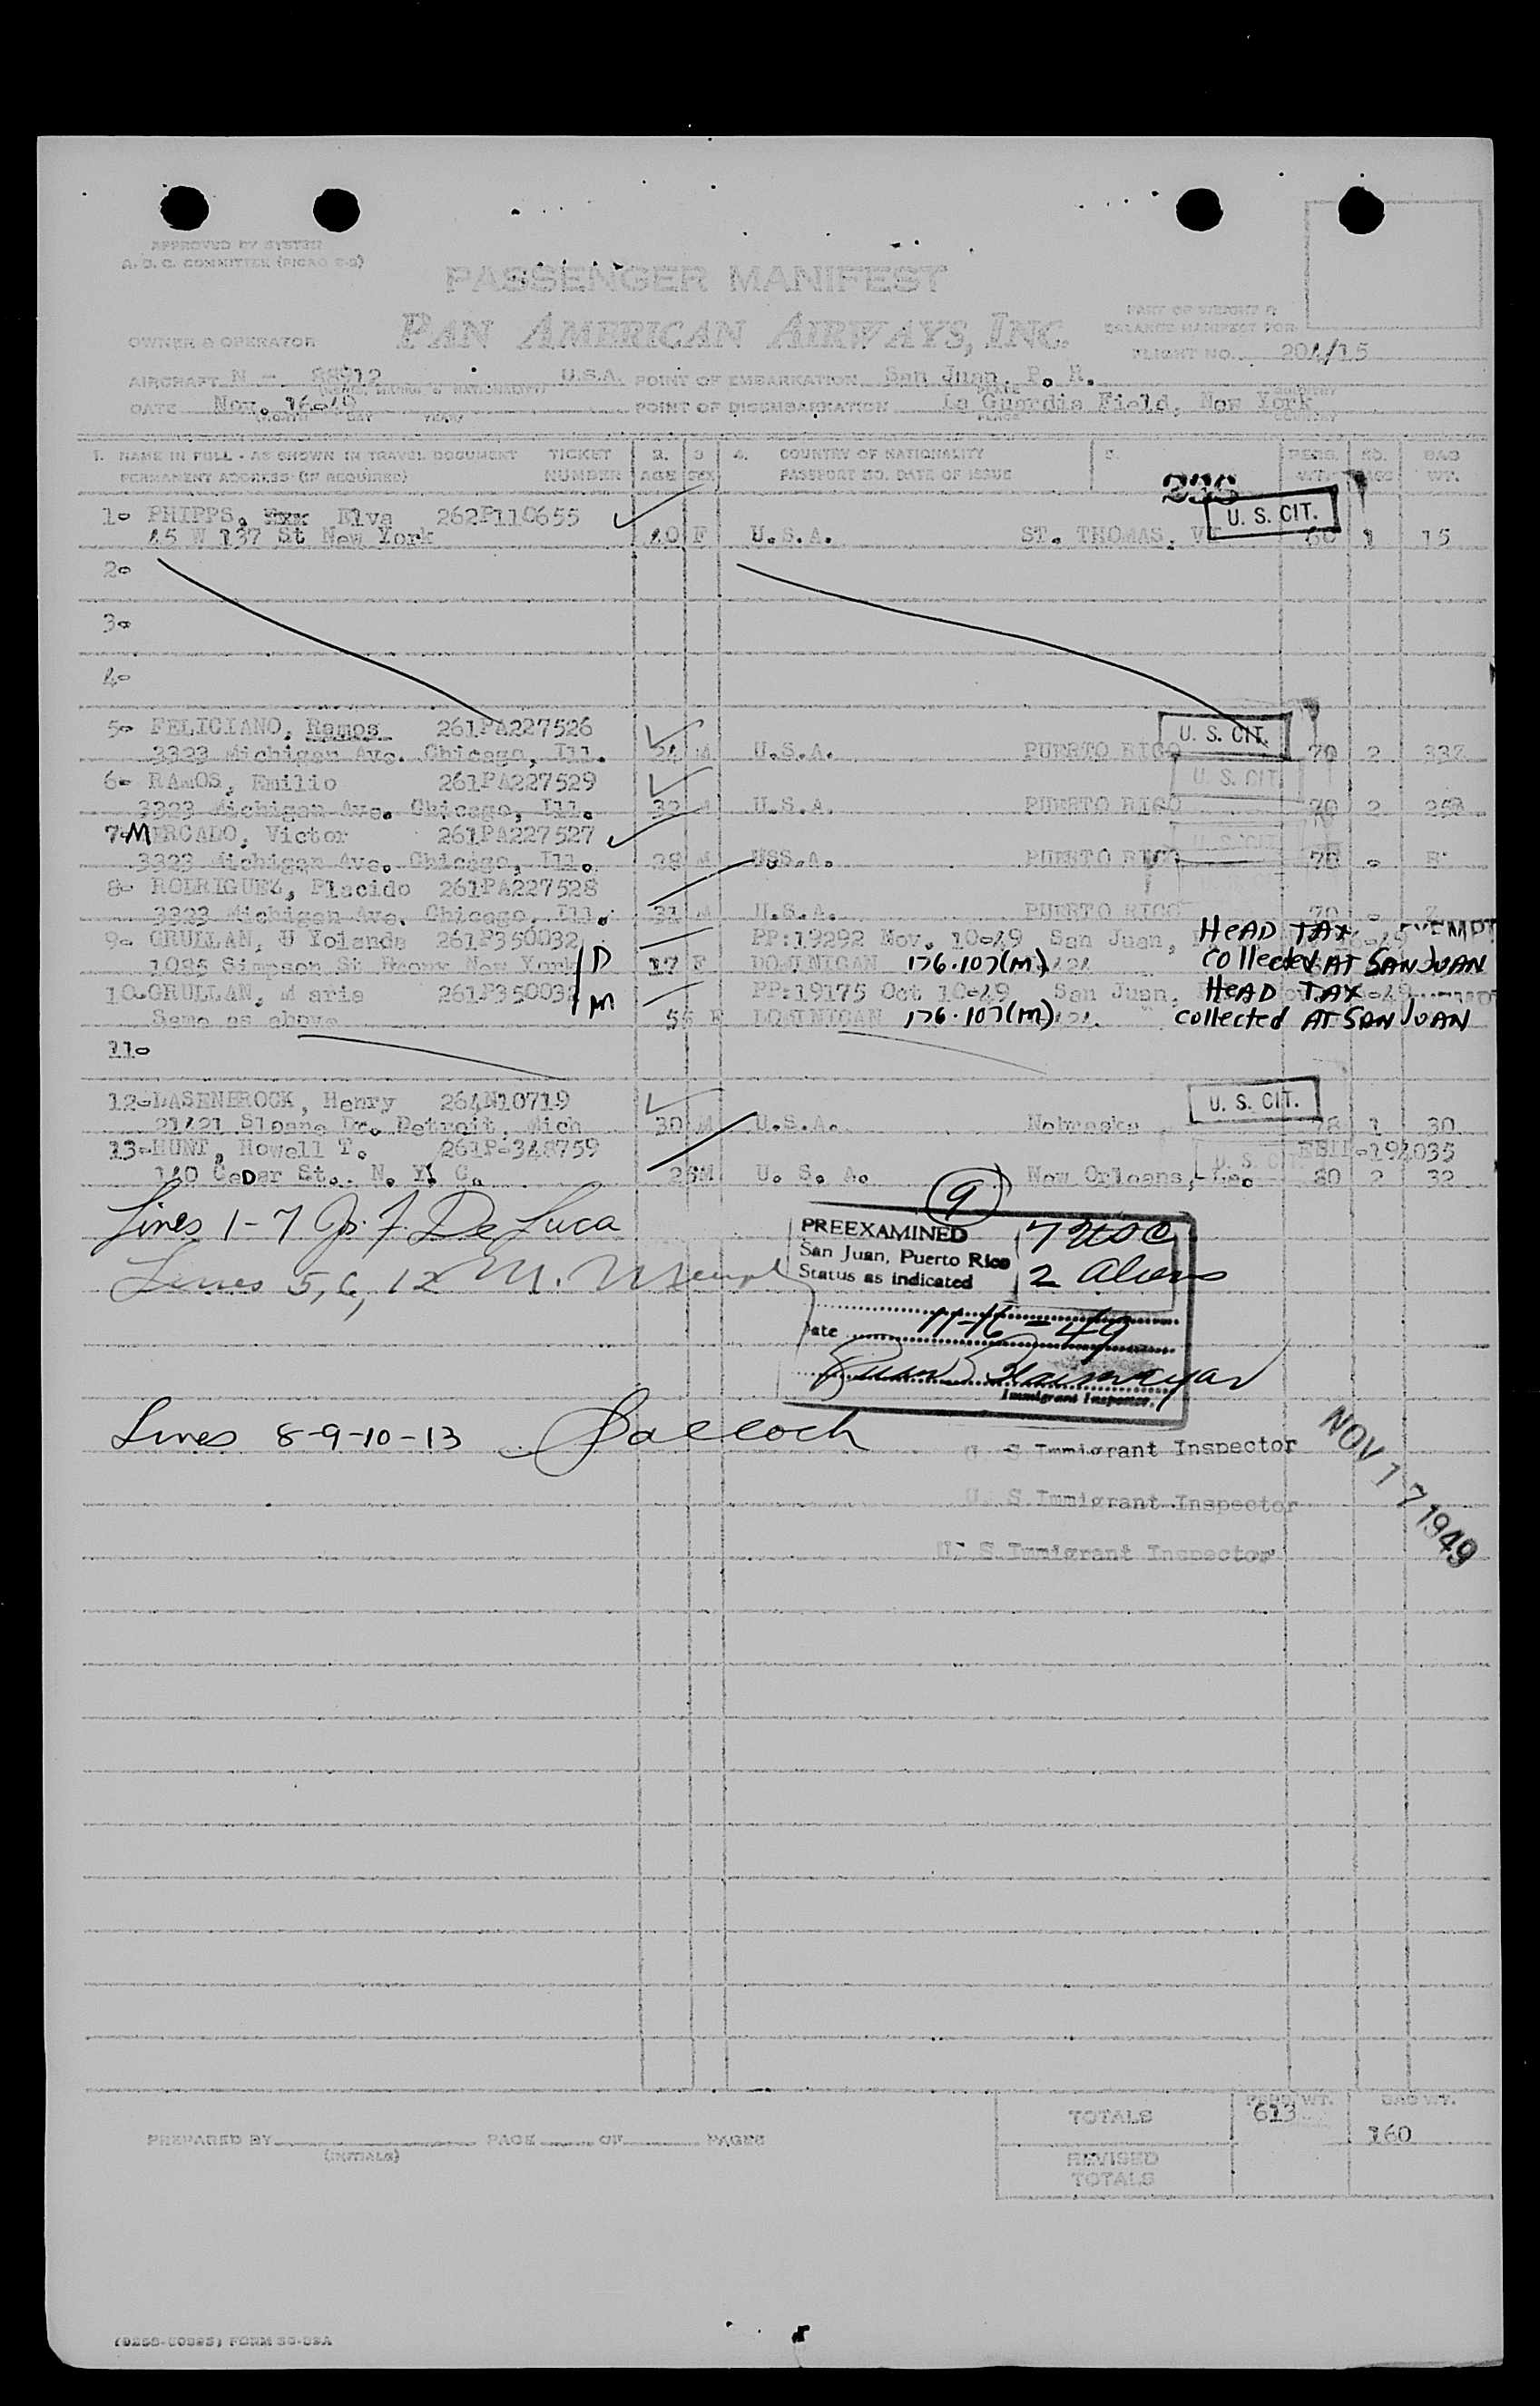 APPROVED BY SYSTEM
A.D.C. COMMITTEE
PASSENGER MANIFEST
PAN AMERICAN AIRWAYS, INC.
PART OF WEIGHT &
BALANCE MANIFEST FOR
OWNER & OPERATOR
FLIGHT NO. 204/15
AIRCRAFT N - 88912 U.S.A. POINT OF EMBARKATION San Juan, P. R.
DATE Nov. 16-49 POINT OF DISEMBARKATION La Guardia Field, New York
1. NAME IN FULL - AS SHOWN IN TRAVEL DOCUMENT TICKET 2. 3 4. COUNTRY OF NATIONALITY 5. PEGR. NO. BAG
PERMANENT ADDRESS (IF REQUIRED) NUMBER AGE SEX PASSPORT NO. DATE OF ISSUE WT. WT.
236
1- PHIPPS, Elva 262P110655 U. S. CIT.
45 W 137 St New York 40 F U.S.A. ST. THOMAS, 60 1 15
2-
3-
4-
5- FELICIANO, Ramos 261PA227526 U. S. CIT.
3323 Michigan Ave. Chicago, Ill. 24 M U.S.A. PUERTO RICO 70 2
6- RAMOS, Emilio 261PA227529 U. S. CIT.
3323 Michigan Ave. Chicago, Ill. 32 M U.S.A. PUERTO RICO 70 2
7- MERCADO, Victor 261PA227527 U. S. CIT.
3323 Michigan Ave. Chicago, Ill. 28 M USS.A. PUERTO RICO 70 -
8- RODRIGUEZ, Placido 261PA227528
3323 Michigan Ave. Chicago, Ill. 31 M U.S.A. PUERTO RICO 70 -
9- GRULLAN, U Yolanda 261P350032 D PP:19292 Nov. 10-49 San Juan, HEAD TAX EXEMPT
1085 Simpson St Bronx New York 17 F DOMINICAN 176.107(M) collected AT SAN JUAN
10- GRULLAN, M aria 261P350032 M PP:19175 Oct 10-49 San Juan, HEAD TAX
Same as above 55 F DOMINICAN 176.107(M) collected AT SAN JUAN
11-
12- DASENBROCK, Henry 264N10719 U. S. CIT.
21421 Sloane Dr. Detroit, Mich 30 M U.S.A. Nebraska 78 1 30
13- HUNT, Howell T. 261P-348759
140 Cedar St. N. Y. C. 26 M U. S. A. New Orleans, La. 80 2 32
9
Lines 1-7 Jos. F. De Luca
PREEXAMINED 7 USC
San Juan, Puerto Rico
Status as indicated 2 Aliens
Lines 5, 6, 12 M.
Date 11-16-49
Immigrant Inspector.
Lines 8-9-10-13
U. S. Immigrant Inspector
NOV 17 1949
U. S. Immigrant Inspector
U. S. Immigrant Inspector
TOTALS PEGR. WT. 613 BAG WT. 160
PREPARED BY PAGE OF PAGES
(INITIALS)
REVISED
TOTALS